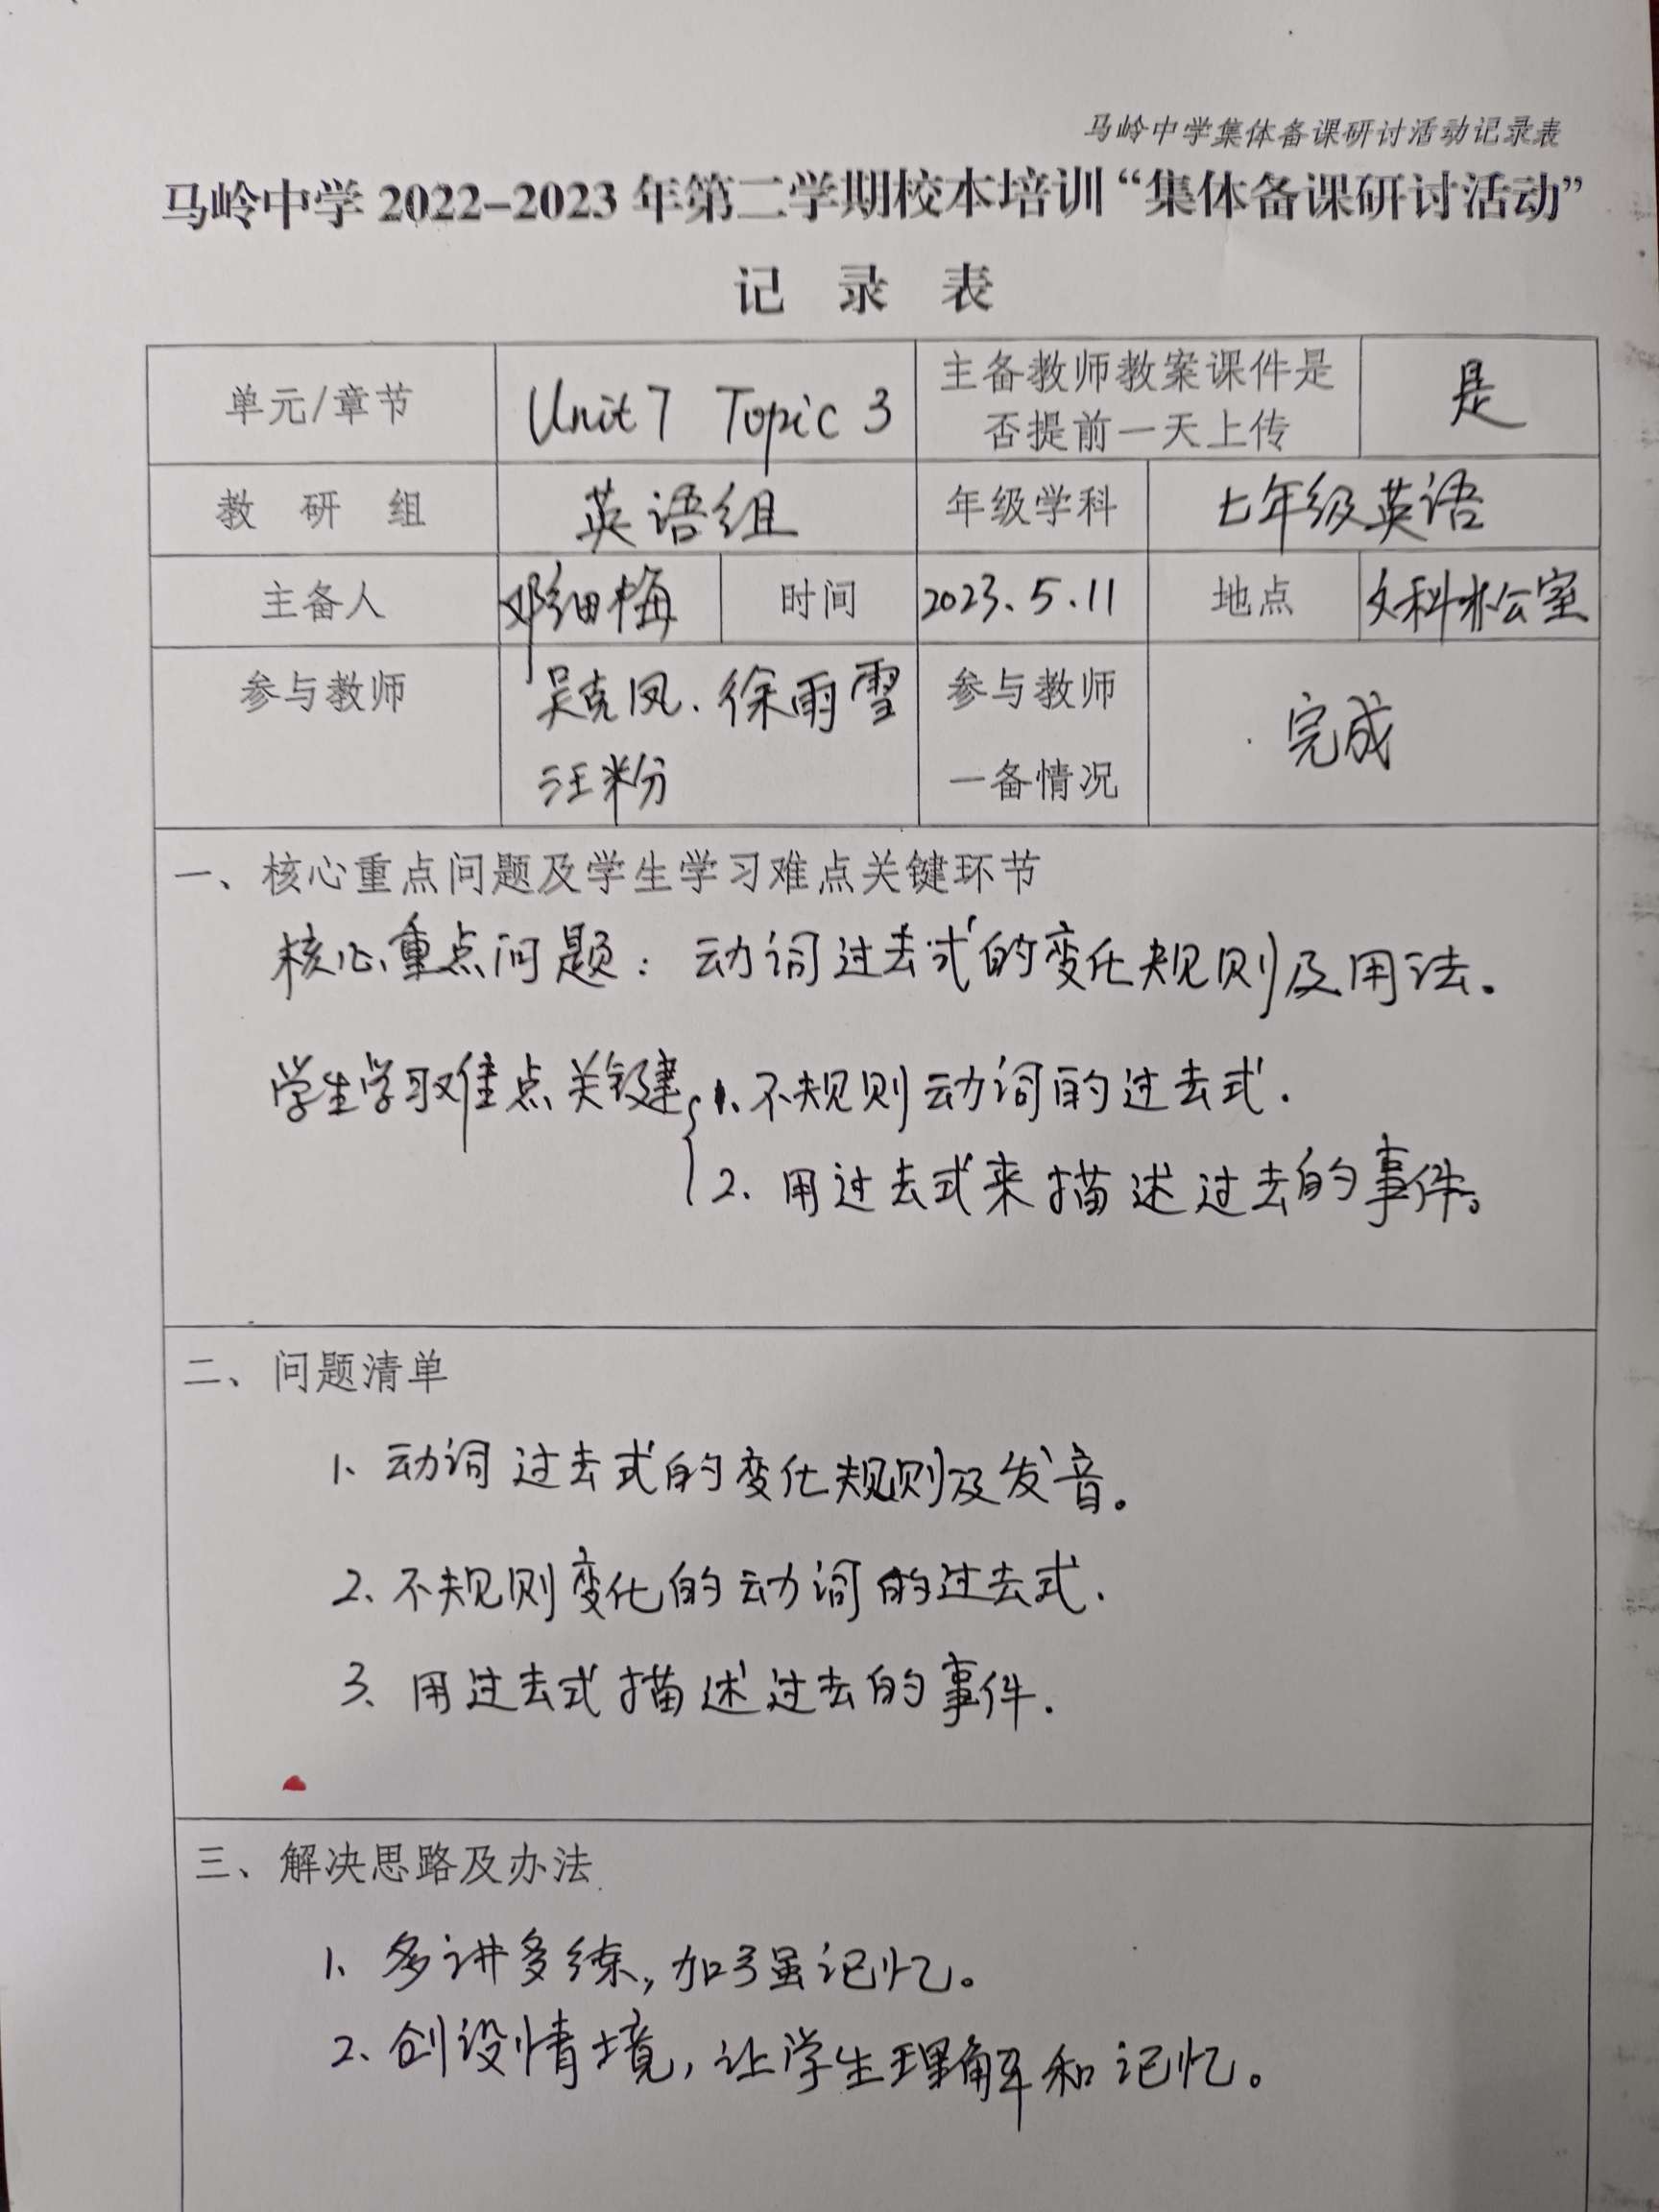 马岭中学集体备课研讨活动记录表
马岭中学 2022-2023 年第二学期校本培训“集体备课研讨活动”
记 录 表
单元/章节 Unit 7 Topic 3 主备教师教案课件是否提前一天上传 是
教 研 组 英语组 年级学科 七年级英语
主备人 邓细梅 时间 2023.5.11 地点 文科办公室
参与教师 吴克凤、徐雨雪 参与教师 完成
汪粉 一备情况
一、核心重点问题及学生学习难点关键环节
核心重点问题：动词过去式的变化规则及用法。
学生学习难点关键 1. 不规则动词的过去式.
2. 用过去式来描述过去的事件。
二、问题清单
1、动词过去式的变化规则及发音。
2、不规则变化的动词的过去式.
3、用过去式描述过去的事件.
三、解决思路及办法
1、多讲多练，加强记忆。
2、创设情境，让学生理解和记忆。